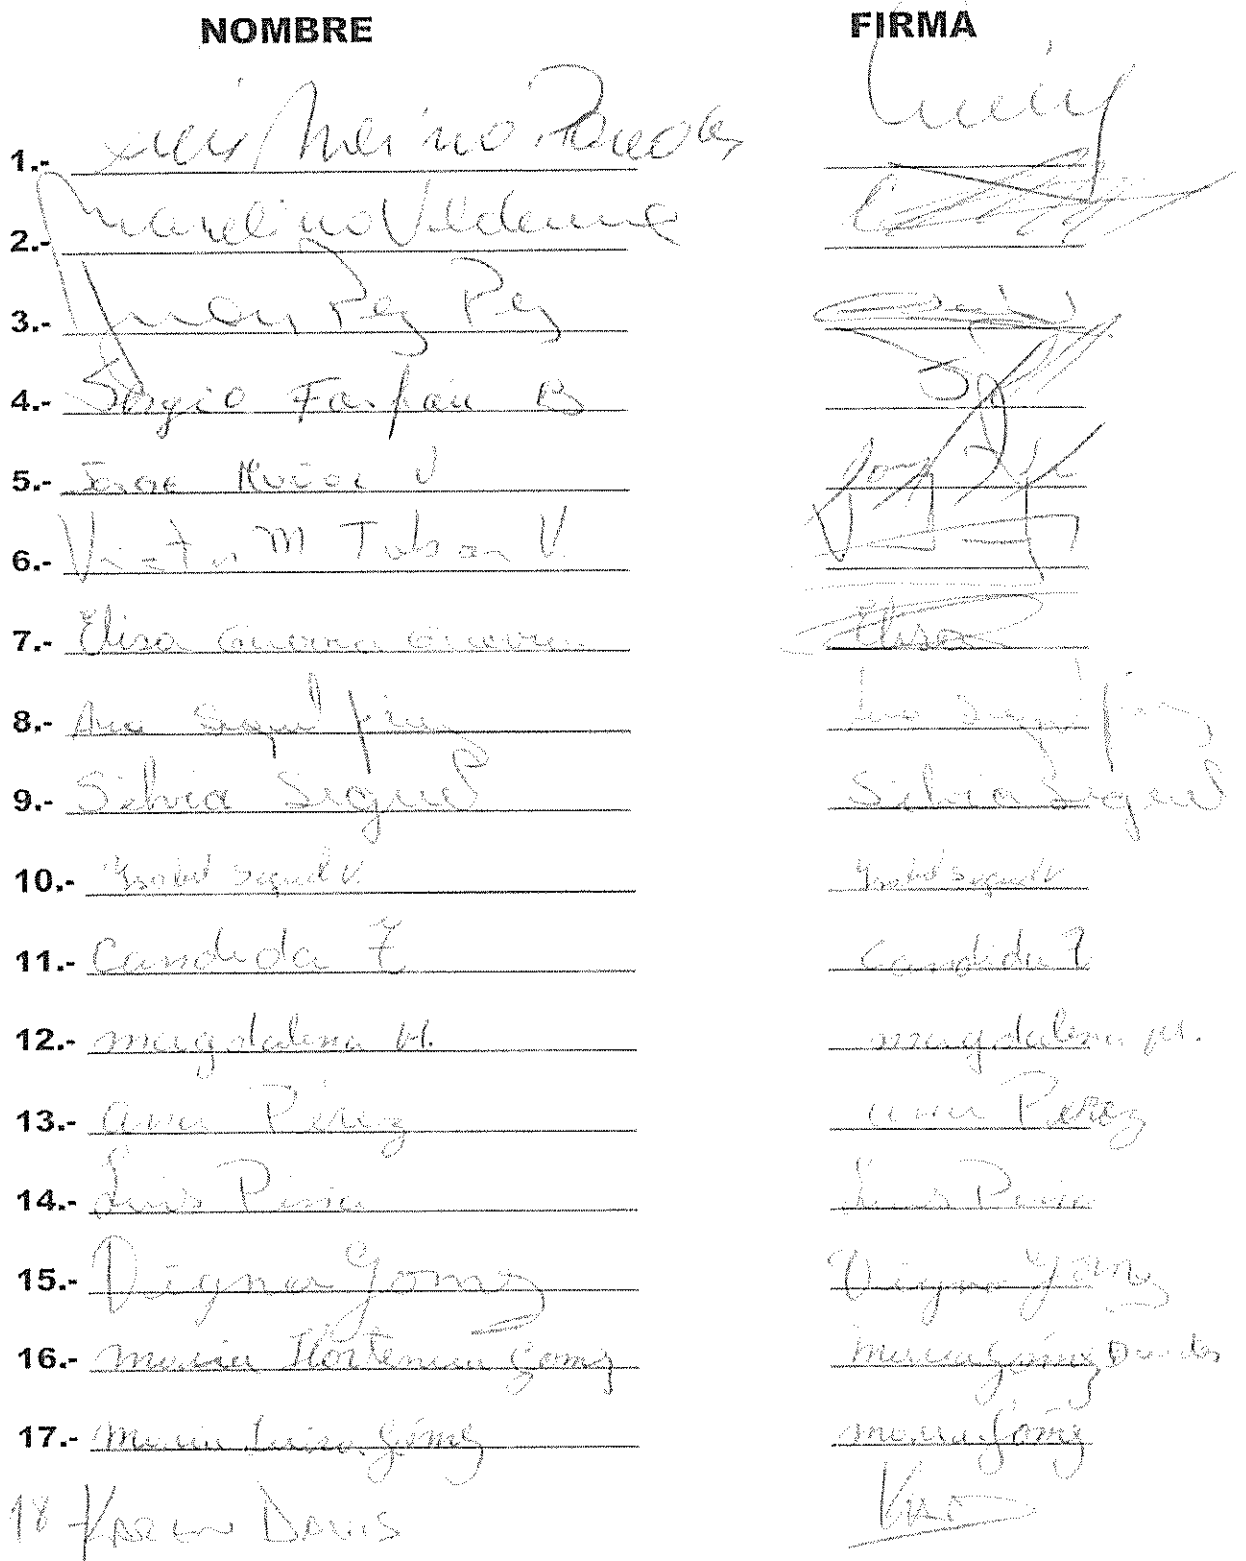 NOMBRE FIRMA
1.- Merino Paredes
2.- Marcelino Valdenne
3.- Juan Pez Pez
4.- Sergio Farfan B
5.- Jorge Muñoz V
6.- Victor M Tobar V.
7.- Elisa Guerra Guerra Elisa
8.- Ana Seguel Ana Seguel
9.- Silvia Seguel Silvia Seguel
10.- Ysabel Seguel V. Ysabel Seguel V
11.- Candida Z Candida Z
12.- magdalena M. magdalena M.
13.- ana Pérez ana Perez
14.- Luis Peña Luis Peña
15.- Digna Gomez Digna Gomez
16.- maria Hortencia Gomez maria Gómez
17.- maria Luisa Gómez maria Gómez
18- KAREN DAVIS